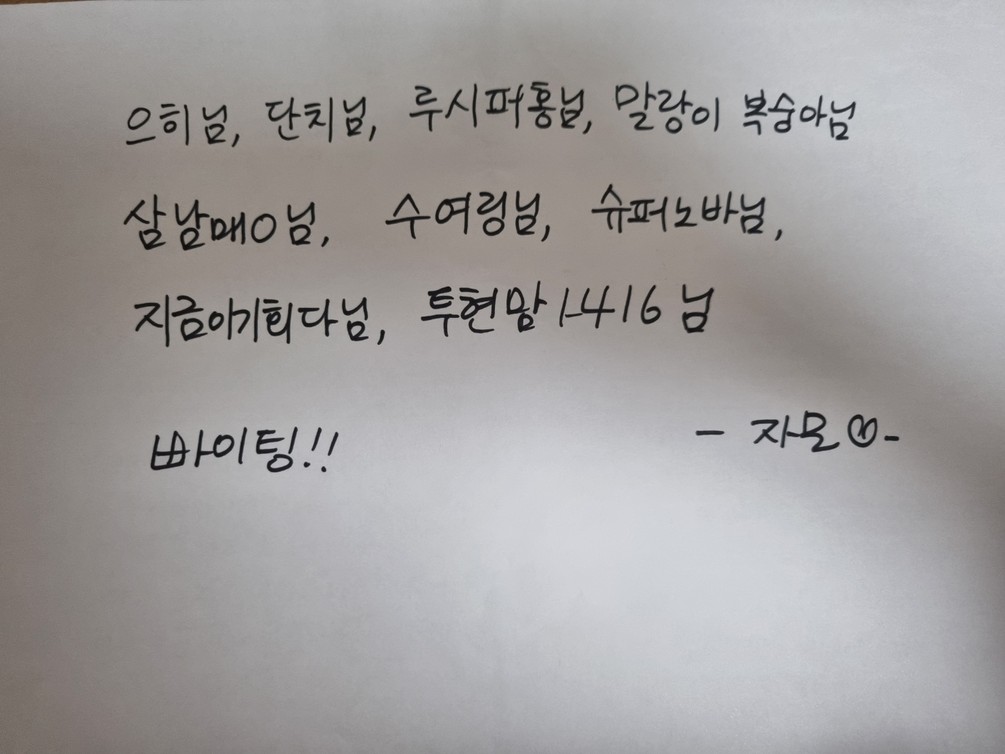 으히님, 단치님, 루시퍼홍님, 말랑이 복숭아님
삼남매o님, 수여링님, 슈퍼노바님,
지금이기회다님, 투현맘1416님
빠이팅!! - 자모♡-